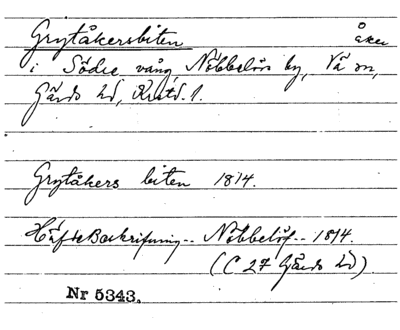 Grytåkersbiten åker
i Södre vång, Nöbbelövs by, Vä sn,
Gärds hd, Krstd. l.
Grytåkers biten 1814.
Häfde Beskrifning -- Nöbbelöf -- 1814.
(C 27 Gärds hd).
Nr 5343.